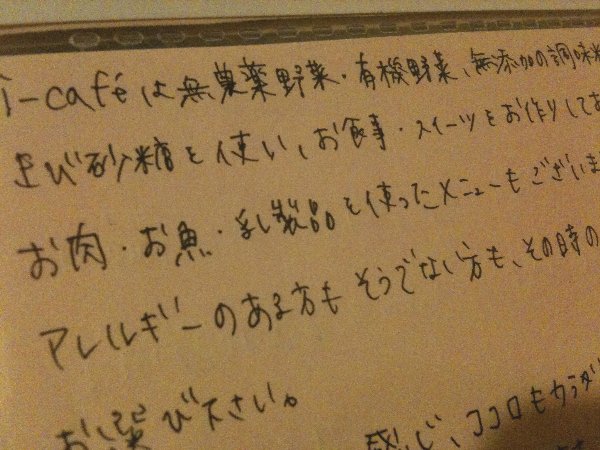 i-caféは無農薬野菜・有機野菜、無添加の調味料
及び砂糖を使い、お食事・スイーツをお作りしてお
お肉・お魚・乳製品を使ったメニューもございま
アレルギーのある方もそうでない方も、その時の
お選び下さい。
感じ、ココロもカラダ